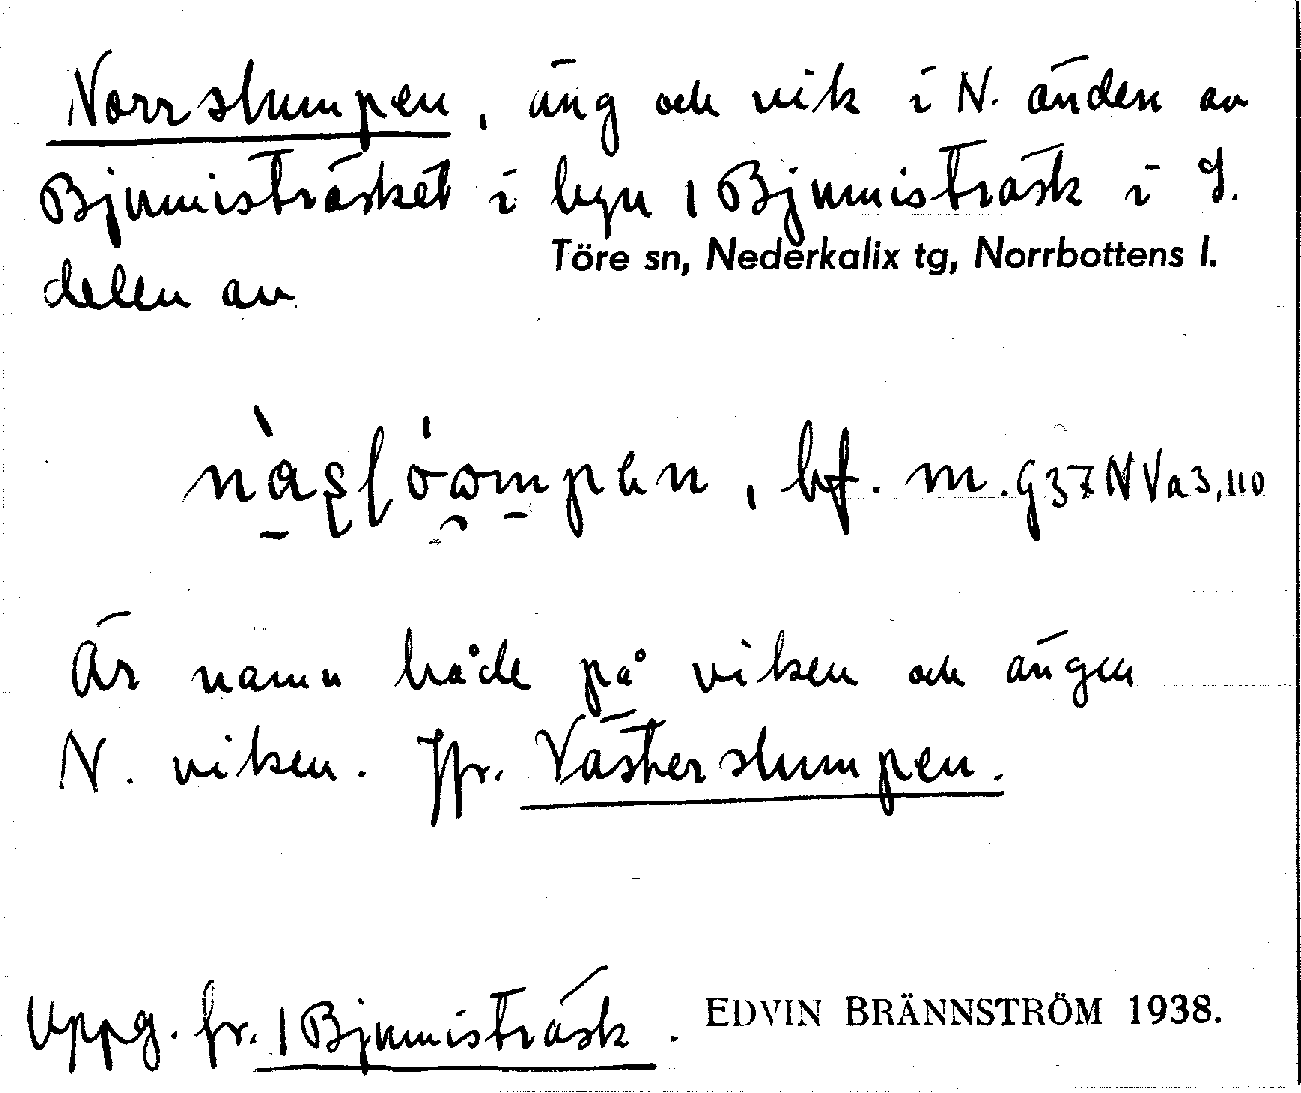 Norrslumpen, äng och vik i N. änden av
Bjumisträsket i byn 1 Bjumisträsk i S.
Töre sn, Nederkalix tg, Norrbottens l.
delen av
bf. m. G37NVa3,110
Är namn både på viken och ängen
N. viken. Jfr. Västerslumpen.
Uppg. fr. 1 Bjumisträsk. EDVIN BRÄNNSTRÖM 1938.